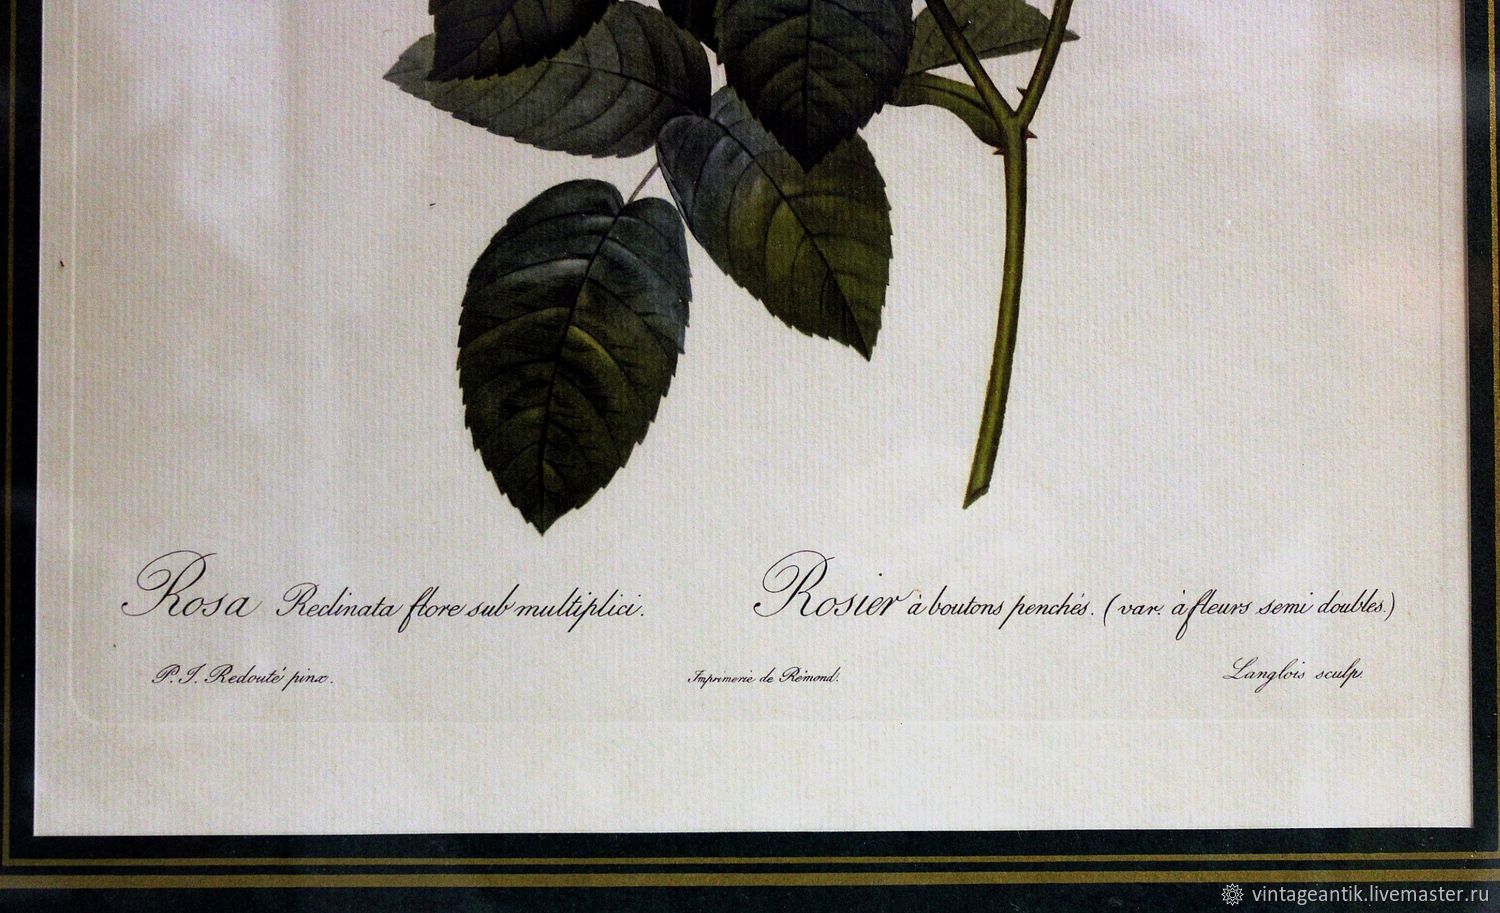 Rosa Reclinata flore sub multiplici.
Rosier à boutons penchés. (var. à fleurs semi doubles.)
P. J. Redouté pinx.
Imprimerie de Rémond.
Langlois sculp.
vintageantik.livemaster.ru